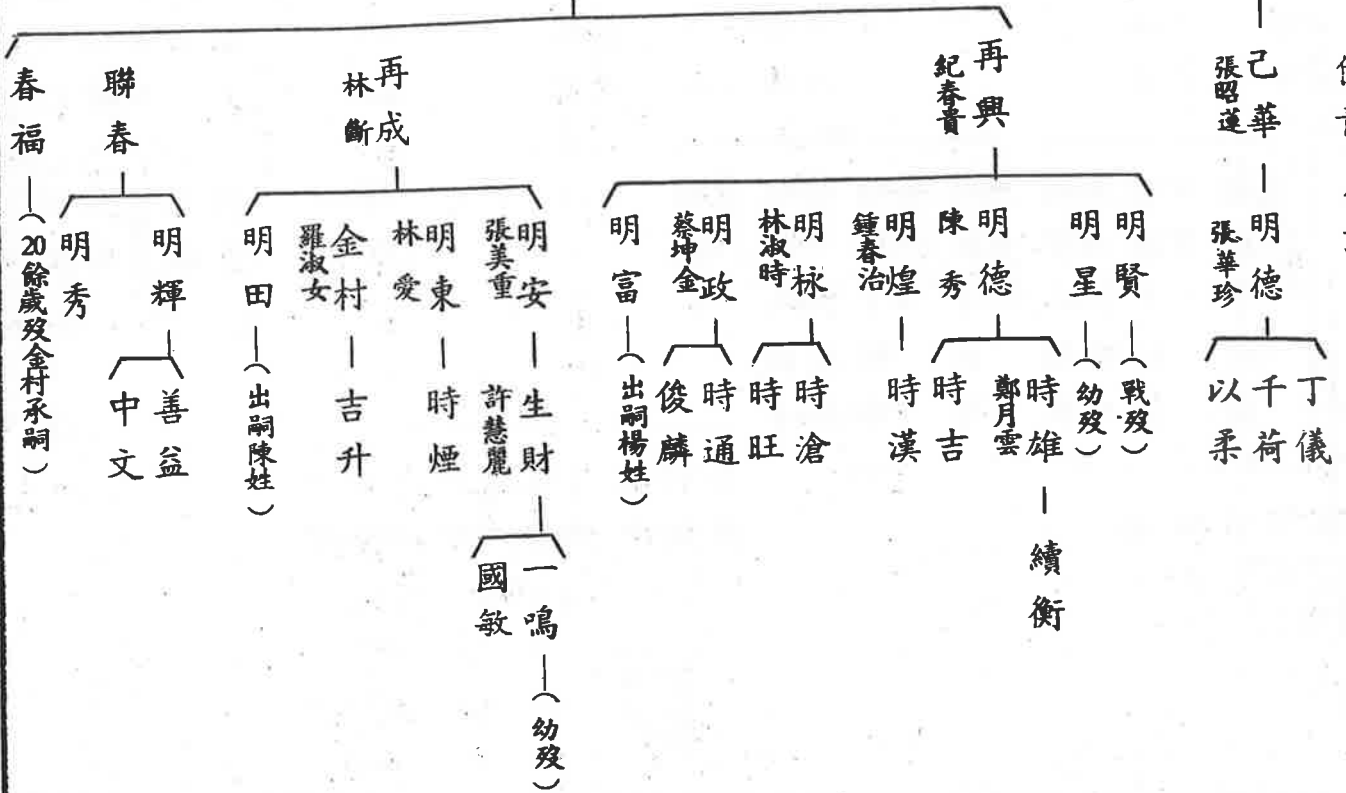 己華
張昭蓮
明德
張華珍
丁儀
千荷
以柔
再興
紀春貴
明賢
(戰歿)
明星
(幼歿)
明德
陳秀
時雄
鄭月雲
續衡
時吉
明煌
鍾春治
時漢
明栐
林淑時
時滄
時旺
明政
蔡坤金
時通
俊麟
明富
(出嗣楊姓)
再成
林斷
明安
張美重
生財
許慧麗
一鳴
(幼歿)
國敏
明東
林愛
時煙
金村
羅淑女
吉升
明田
(出嗣陳姓)
聯春
明輝
善益
中文
明秀
春福
(20餘歲歿金村承嗣)